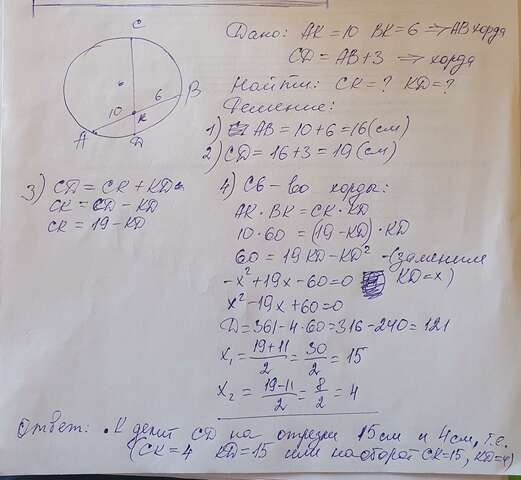 Дано: AK = 10 BK = 6 ⇒ AB хорда
CD = AB + 3 ⇒ хорда
Найти: CK = ? KD = ?
Решение:
1) AB = 10 + 6 = 16 (см)
2) CD = 16 + 3 = 19 (см)
C
6
B
10
K
A
D
3) CD = CK + KD
CK = CD - KD
CK = 19 - KD
4) Св-во хорды:
AK · BK = CK · KD
10 · 60 = (19 - KD) · KD
60 = 19 KD - KD² - (заменим
-x² + 19x - 60 = 0 KD = x)
x² - 19x + 60 = 0
D = 361 - 4 · 60 = 316 - 240 = 121
x₁ = (19 + 11)/2 = 30/2 = 15
x₂ = (19 - 11)/2 = 8/2 = 4
Ответ: · K делит CD на отрезки 15 см и 4 см, т.е.
(CK = 4 KD = 15 или наоборот CK = 15, KD = 4)